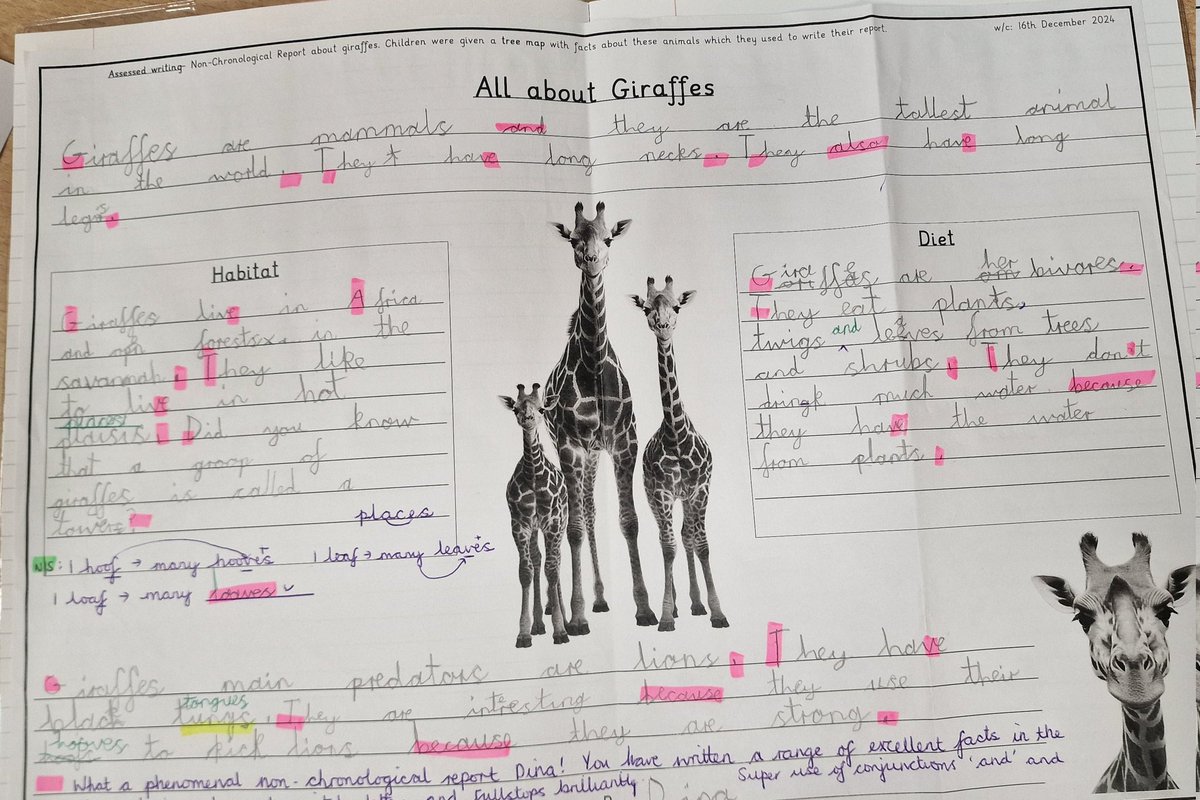 Assessed writing- Non-Chronological Report about giraffes. Children were given a tree map with facts about these animals which they used to write their report.
w/c: 16th December 2024
All about Giraffes
Giraffes are mammals and they are the tallest animal
in the world. They have long necks. They also have long
legs.
Habitat
Giraffes live in Africa
and opn forests, in the
savannah. They like
to live in hot
places
plaisis. Did you know
that a groop of
giraffes is called a
towers?
places
Diet
Giraffes are herbivores.
They eat plants,
twigs and leaves from trees
and shrubs. They don't
dringk much water because
they have the water
from plants.
N/S: 1 hoof → many hooves 1 leaf → many leaves
1 loaf → many loaves
Giraffes main predators are lions. They have
black tungs. They are interesting because they use their
tongues
hooves to kick lions because they are strong.
What a phenomenal non-chronological report Dina! You have written a range of excellent facts in the
and fullstops brilliantly. Super use of conjunctions 'and' and
Dina